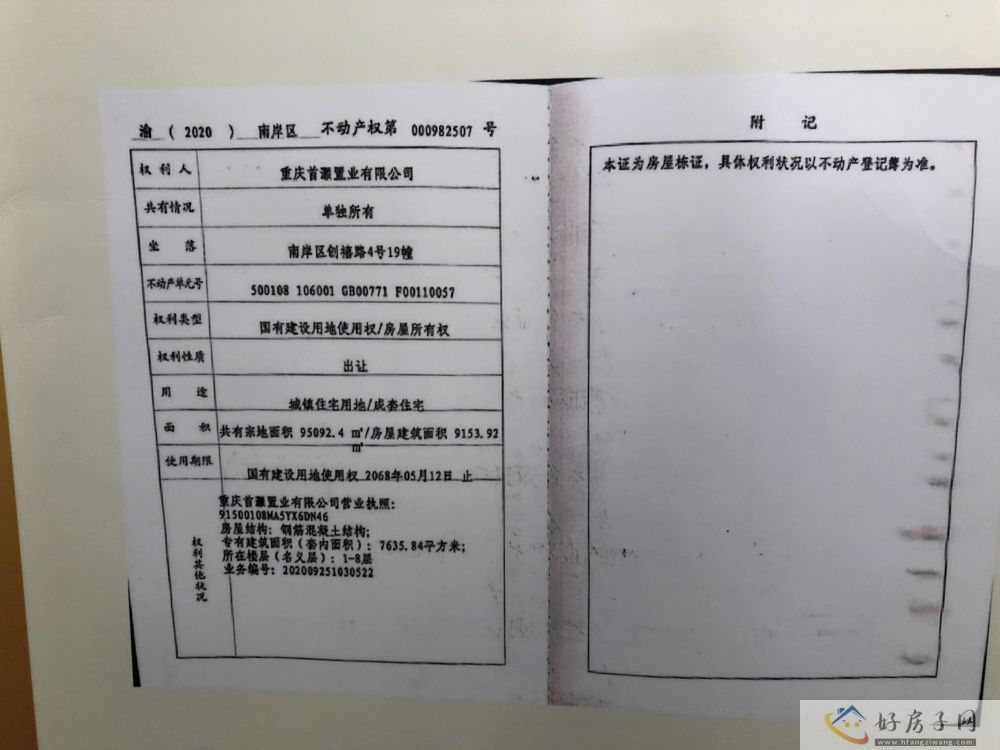 渝 ( 2020 ) 南岸区 不动产权第 000982507 号
权利人 重庆首灏置业有限公司
共有情况 单独所有
坐落 南岸区创禧路4号19幢
不动产单元号 500108 106001 GB00771 F00110057
权利类型 国有建设用地使用权/房屋所有权
权利性质 出让
用途 城镇住宅用地/成套住宅
面积 共有宗地面积 95092.4 ㎡/房屋建筑面积 9153.92
㎡
使用期限 国有建设用地使用权 2068年05月12日 止
权利其他状况
重庆首灏置业有限公司营业执照:
91500108MA5YX6DN46
房屋结构: 钢筋混凝土结构;
专有建筑面积(套内面积): 7635.84平方米;
所在楼层(名义层): 1-8层
业务编号: 202009251030522
附 记
本证为房屋栋证，具体权利状况以不动产登记簿为准。
好房子网
www.hfangziwang.com